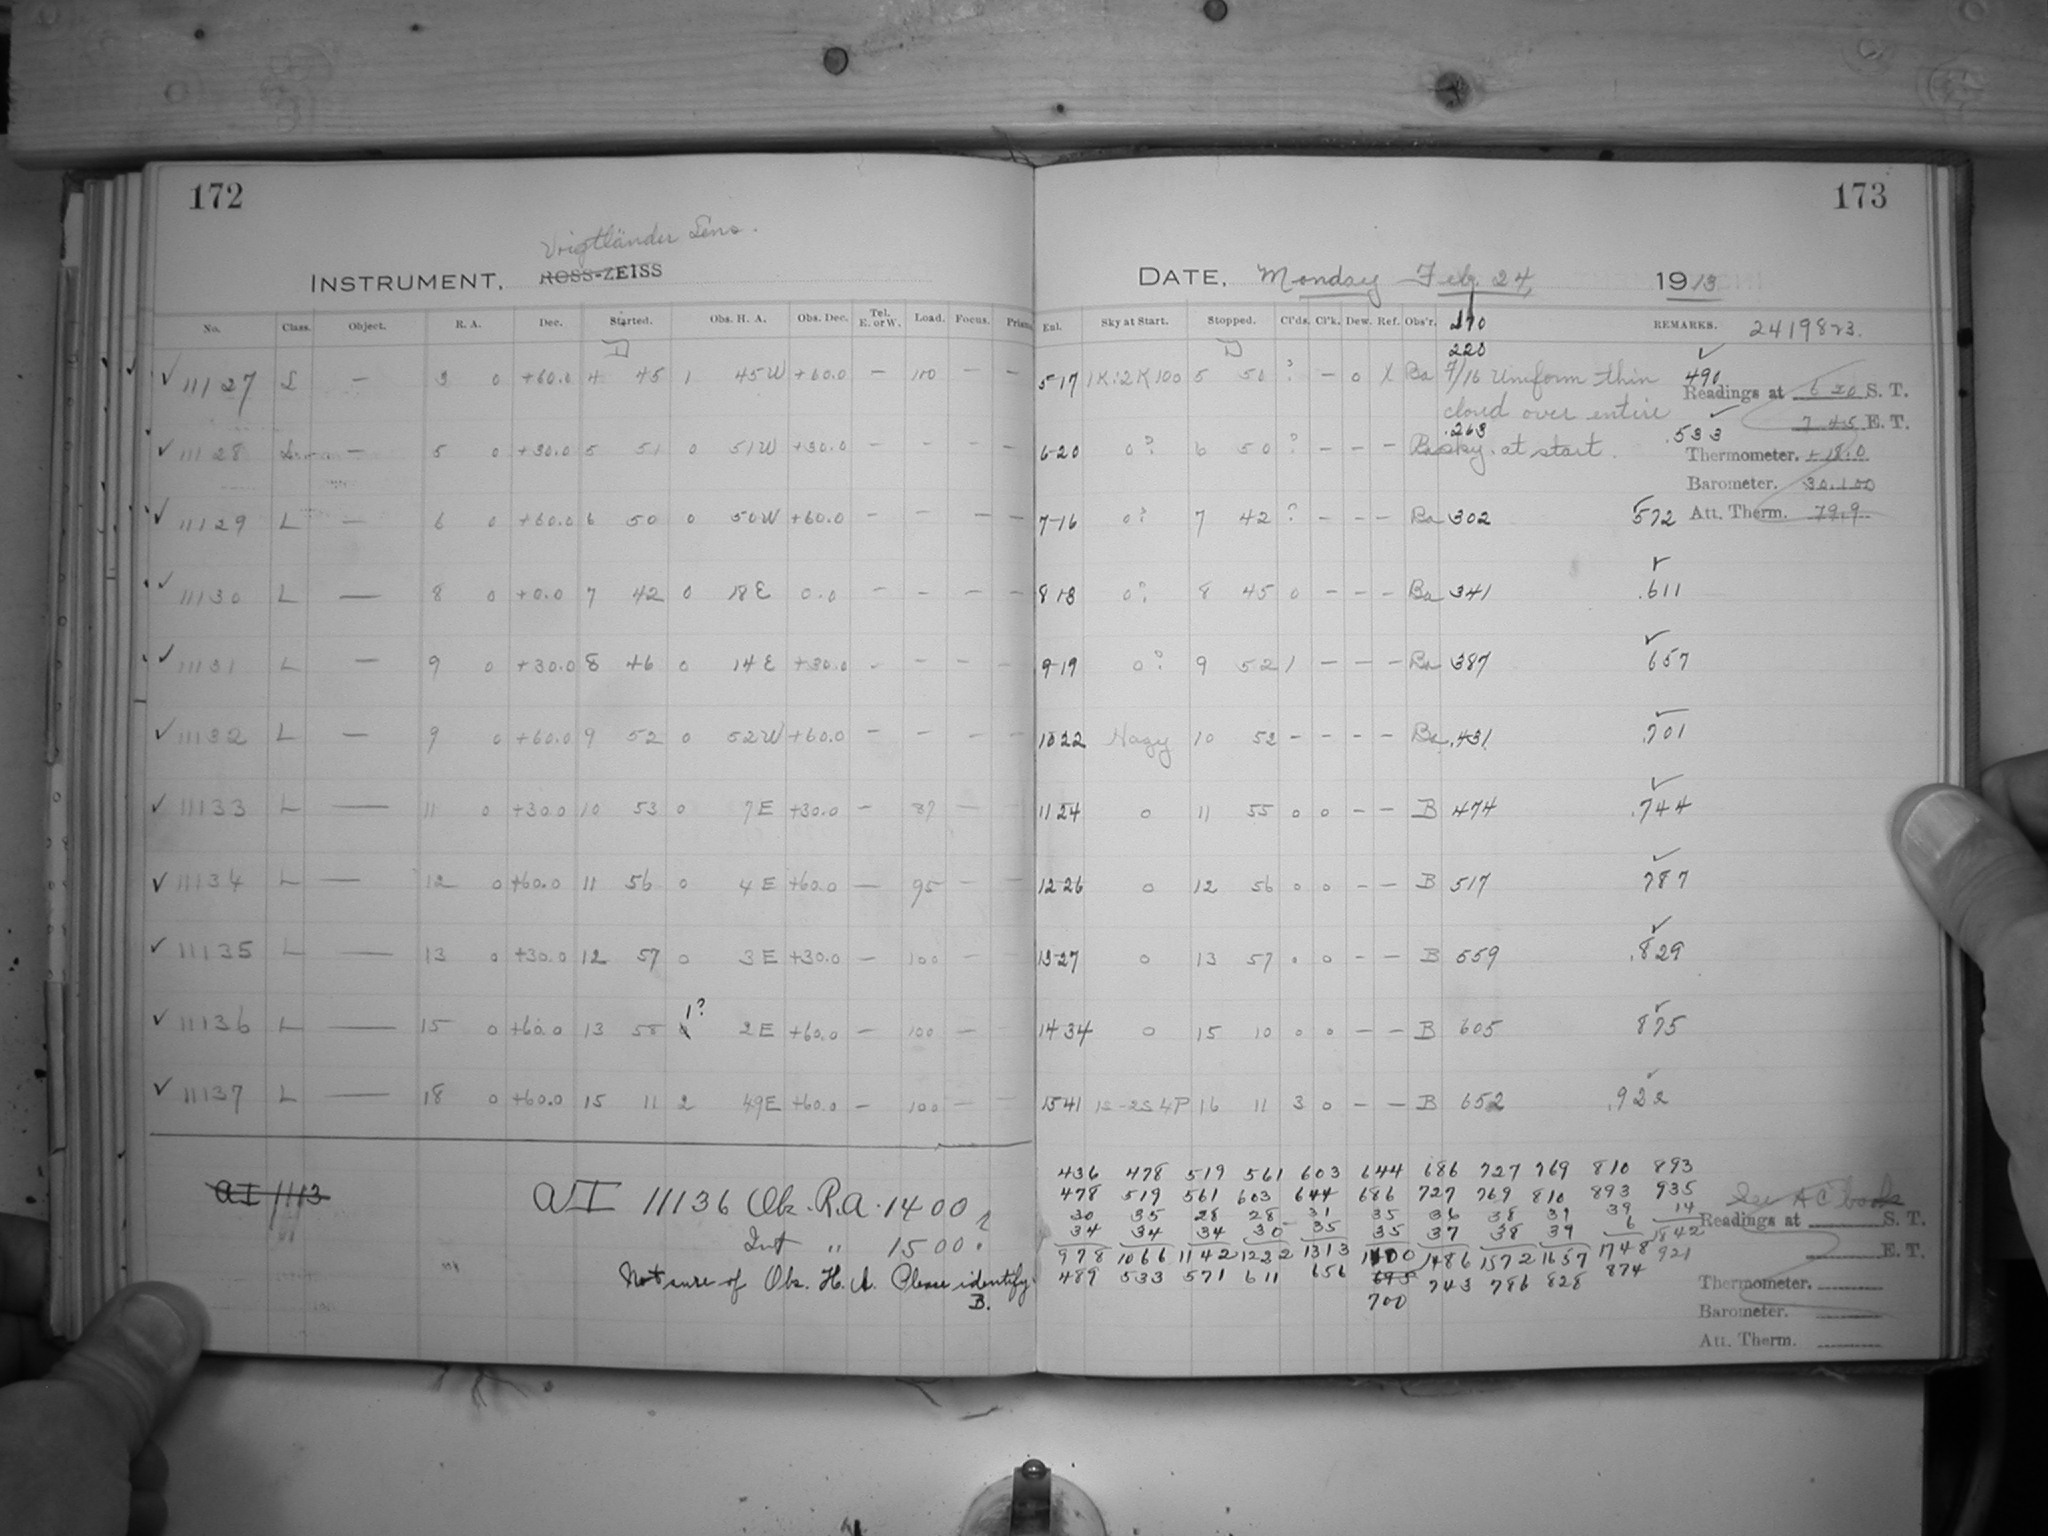 172
Voigtländer Lens.
INSTRUMENT, ROSS-ZEISS
No. Class. Object. R. A. Dec. Started. Obs. H. A. Obs. Dec. Tel. E. or W. Load. Focus. Prism
11127 L — 3 0 +60.0 4 45 1 45W +60.0 — 100 — —
11128 — 5 0 +30.0 5 51 0 51W +30.0 — — —
11129 L — 6 0 +60.0 6 50 0 50W +60.0 — — — —
11130 L — 8 0 +0.0 7 42 0 18E 0.0 — — — —
11131 L — 9 0 +30.0 8 46 0 14E +30.0 — — — —
11132 L — 9 0 +60.0 9 52 0 52W +60.0 — — — —
11133 L — 11 0 +30.0 10 53 0 7E +30.0 — 87 — —
11134 L — 12 0 +60.0 11 56 0 4E +60.0 — 95 — —
11135 L — 13 0 +30.0 12 57 0 3E +30.0 — 100 — —
1?
11136 L — 15 0 +60.0 13 58 2E +60.0 — 100 — —
11137 L — 18 0 +60.0 15 11 2 49E +60.0 — 100 — —
AI 1113
AI 11136 Ob. R.A. 14 00 ?
Int " 15 00 ?
Not sure of Obs. H. A. Please identify
B.
173
DATE, Monday Feb. 24, 1913
Enl. Sky at Start. Stopped. Cl'ds. Cl'k. Dew. Ref. Obs'r. REMARKS. 2419823.
220
5-17 1K:2K100 5 50 ? — 0 X Ba 7/16 Uniform thin 490
cloud over entire
.263 .533
6-20 0? 6 50 ? — — — sky at start.
7-16 0? 7 42 ? — — — Ba 302 572
8 0? 8 45 0 — — — Ba 341 .611
9-19 0? 9 52 1 — — — Ba 387 657
10 22 Hazy 10 52 — — — — Ba .431 .701
11 24 0 11 55 0 0 — — B 474 .744
12-26 0 12 56 0 0 — — B 517 787
13-27 0 13 57 0 0 — — B 559 .829
14-34 0 15 10 0 0 — — B 605 875
15 41 1S-2S4P 16 11 3 0 — — B 652 .922
Readings at 6 20 S. T.
7 45 E. T.
Thermometer. +18.0
Barometer. 30.100
Att. Therm. 79.9
436 478 519 561 603 644 686 727 769 810 893
478 519 561 603 644 686 727 769 810 893 935
30 35 28 28 31 35 36 38 39 39 14
34 34 34 30 35 35 37 38 39 6
978 1066 1142 1222 1313 1400 1486 1572 1657 1748 1842
489 533 571 611 656 743 786 828 874 921
700
See AC book
Readings at S. T.
E. T.
Thermometer.
Barometer.
Att. Therm.